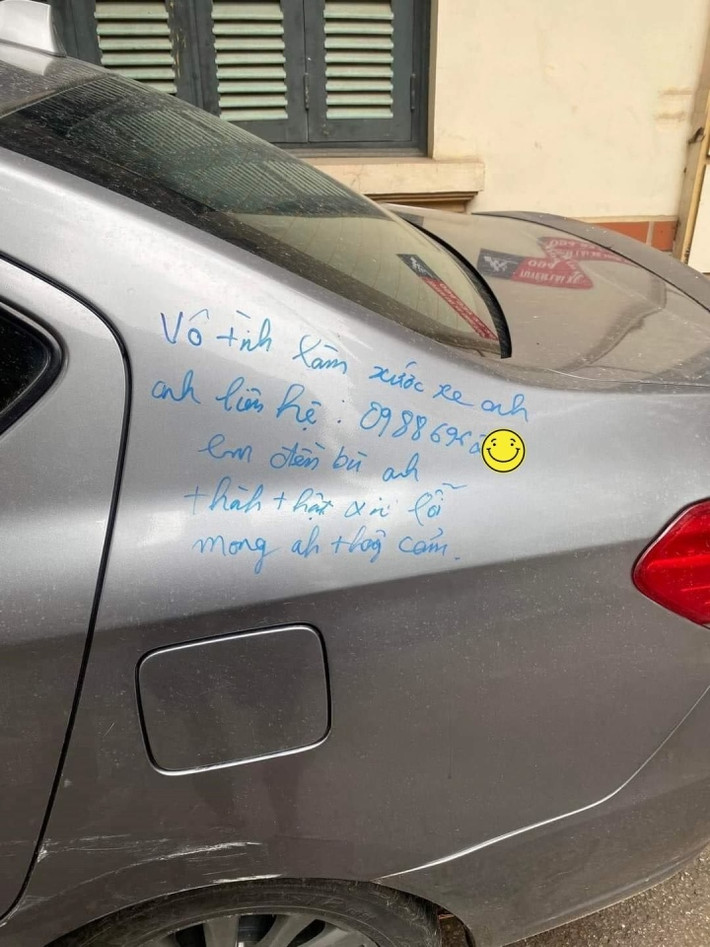 Vô tình làm xước xe anh
anh liên hệ: 098869
em đền bù anh
thành thật xin lỗi
mong ah thôg cảm.